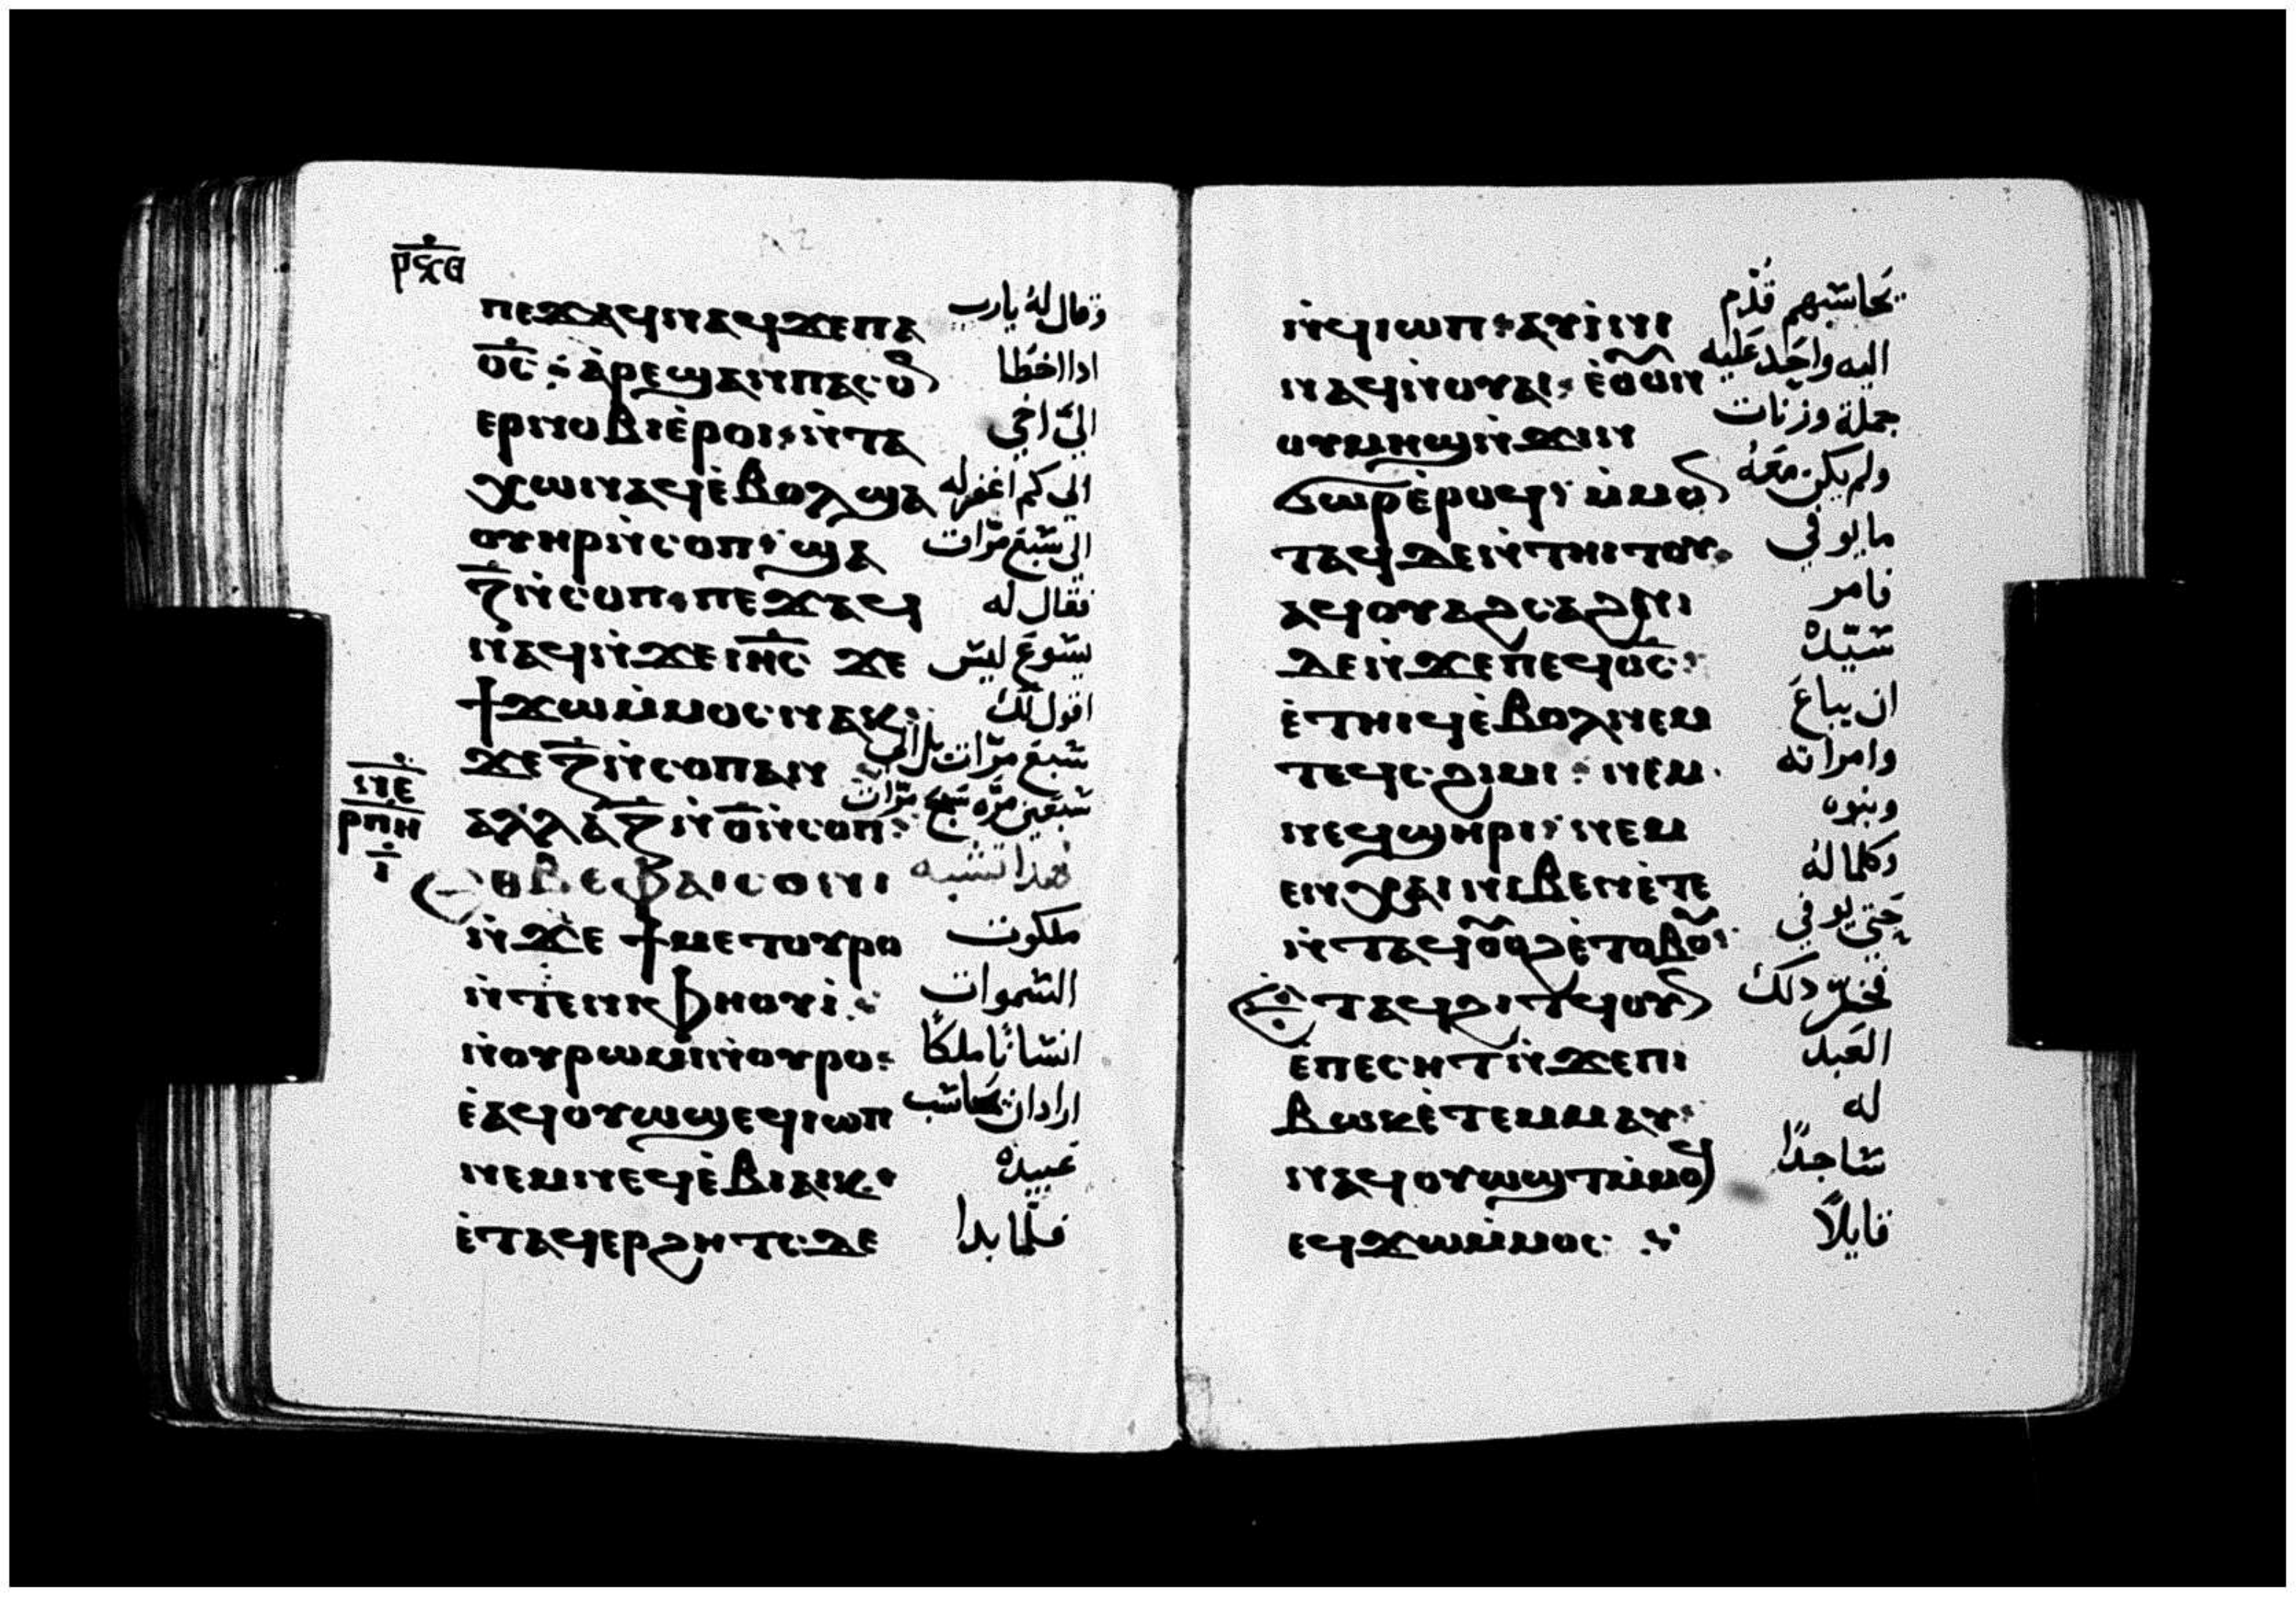 ⲣϥⲑ
ⲡⲉϫⲁϥⲛⲁϥϫⲉⲡⲁ وقال له يارب
ⲟ̅ⲥ̅ ⁖ ⲁ̀ⲣⲉϣⲁⲛⲡⲁⲥⲟⲛ اذا اخطا
ⲉⲣⲛⲟⲃⲓⲉ̀ⲣⲟⲓ⁖ⲛ̀ⲧⲁ اليّ اخي
ⲭⲱⲛⲁϥⲉ̀ⲃⲟⲗϣⲁ الى كم اغفر له
ⲟⲩⲏⲣⲛ̀ⲥⲟⲡ⁖ϣⲁ الى سبع مرّات
ⲍ̅ⲛ̀ⲥⲟⲡ⁖ⲡⲉϫⲁϥ فقال له
ⲛⲁϥⲛ̀ϫⲉⲓⲏ̅ⲥ̅ ϫⲉ يسوع ليس
ϯϫⲱⲙ̀ⲙⲟⲥⲛⲁⲕ⁖ اقول لك
ϫⲉⲍ̅ⲛ̀ⲥⲟⲡⲁⲛ سبع مرّات بل الى
ⲁⲗⲗⲁⲍ̅ⲛ̀ⲟ̅ⲛ̀ⲥⲟⲡ⁖ سبعين مرّه سبع مرّات
ⲣⲡⲏ
ⲓ̅
ⲉⲑⲃⲉⲫⲁⲓⲥⲟⲛⲓ فهذا تشبه
ⲛ̀ϫⲉ ϯⲙⲉⲧⲟⲩⲣⲟ ملكوت
ⲛ̀ⲧⲉⲛⲓⲫⲏⲟⲩⲓ̀⁖ السموات
ⲛ̀ⲟⲩⲣⲱⲙⲓⲛ̀ⲟⲩⲣⲟ⁖ انسانًا ملكًا
ⲉ̀ⲁϥⲟⲩⲱϣⲉϥⲓⲱⲡ اراد ان يحاسب
ⲛⲉⲙⲛⲉϥⲉ̀ⲃⲓⲁⲓⲕ⁖ عبيده
ⲉ̀ⲧⲁϥⲉⲣϩⲏⲧⲥⲇⲉ فلمّا بدا
ⲛ̀ϥⲓⲱⲡ⁖ⲁⲩⲓ̀ⲛⲓ يحاسبهم قدّم
ⲛⲁϥⲛ̀ⲟⲩⲁⲓ⁖ ⲉ̀ⲟⲩⲟⲛ اليه واحد عليه
ⲟⲩⲙⲏϣⲛ̀ϫⲓⲛ جملة وزنات
ϭⲱⲣⲉ̀ⲣⲟϥ⁖ ⲙ̀ⲙⲟⲛ ولم يكن معه
ⲧⲁϥⲇⲉⲛ̀ⲧⲏⲓⲧⲟⲩ⁖ ما يوفي
ⲁϥⲟⲩⲁϩⲥⲁϩⲛⲓ فامر
ⲇⲉⲛ̀ϫⲉⲡⲉϥⲟ̅ⲥ̅⁖ سيّده
ⲉ̀ⲧⲏⲓϥⲉ̀ⲃⲟⲗⲛⲉⲙ ان يباع
ⲧⲉϥⲥϩⲓⲙⲓ⁖ ⲛⲉⲙ وامراته
ⲛⲉϥϣⲏⲣⲓ⁖ ⲛⲉⲙ وبنوه
ⲉⲛⲭⲁⲓⲛⲓⲃⲉⲛⲉ̀ⲧⲉ وكلما له
ⲛ̀ⲧⲁϥⲟⲩⲟϩⲉ̀ⲧⲟⲃⲟⲩ⁖ حتى يوفي
ⲧⲁϥϩⲓⲧϥⲟⲩⲛ فخرّ ذلك
ⲉ̀ⲡⲉⲥⲏⲧⲛ̀ϫⲉⲡⲓ العبد
ⲃⲱⲕⲉ̀ⲧⲉⲙⲙⲁⲩ⁖ له
ⲛⲁϥⲟⲩⲱϣⲧⲙ̀ⲙⲟϥ ساجدًا
ⲉϥϫⲱⲙ̀ⲙⲟⲥ ⁖ قايلًا